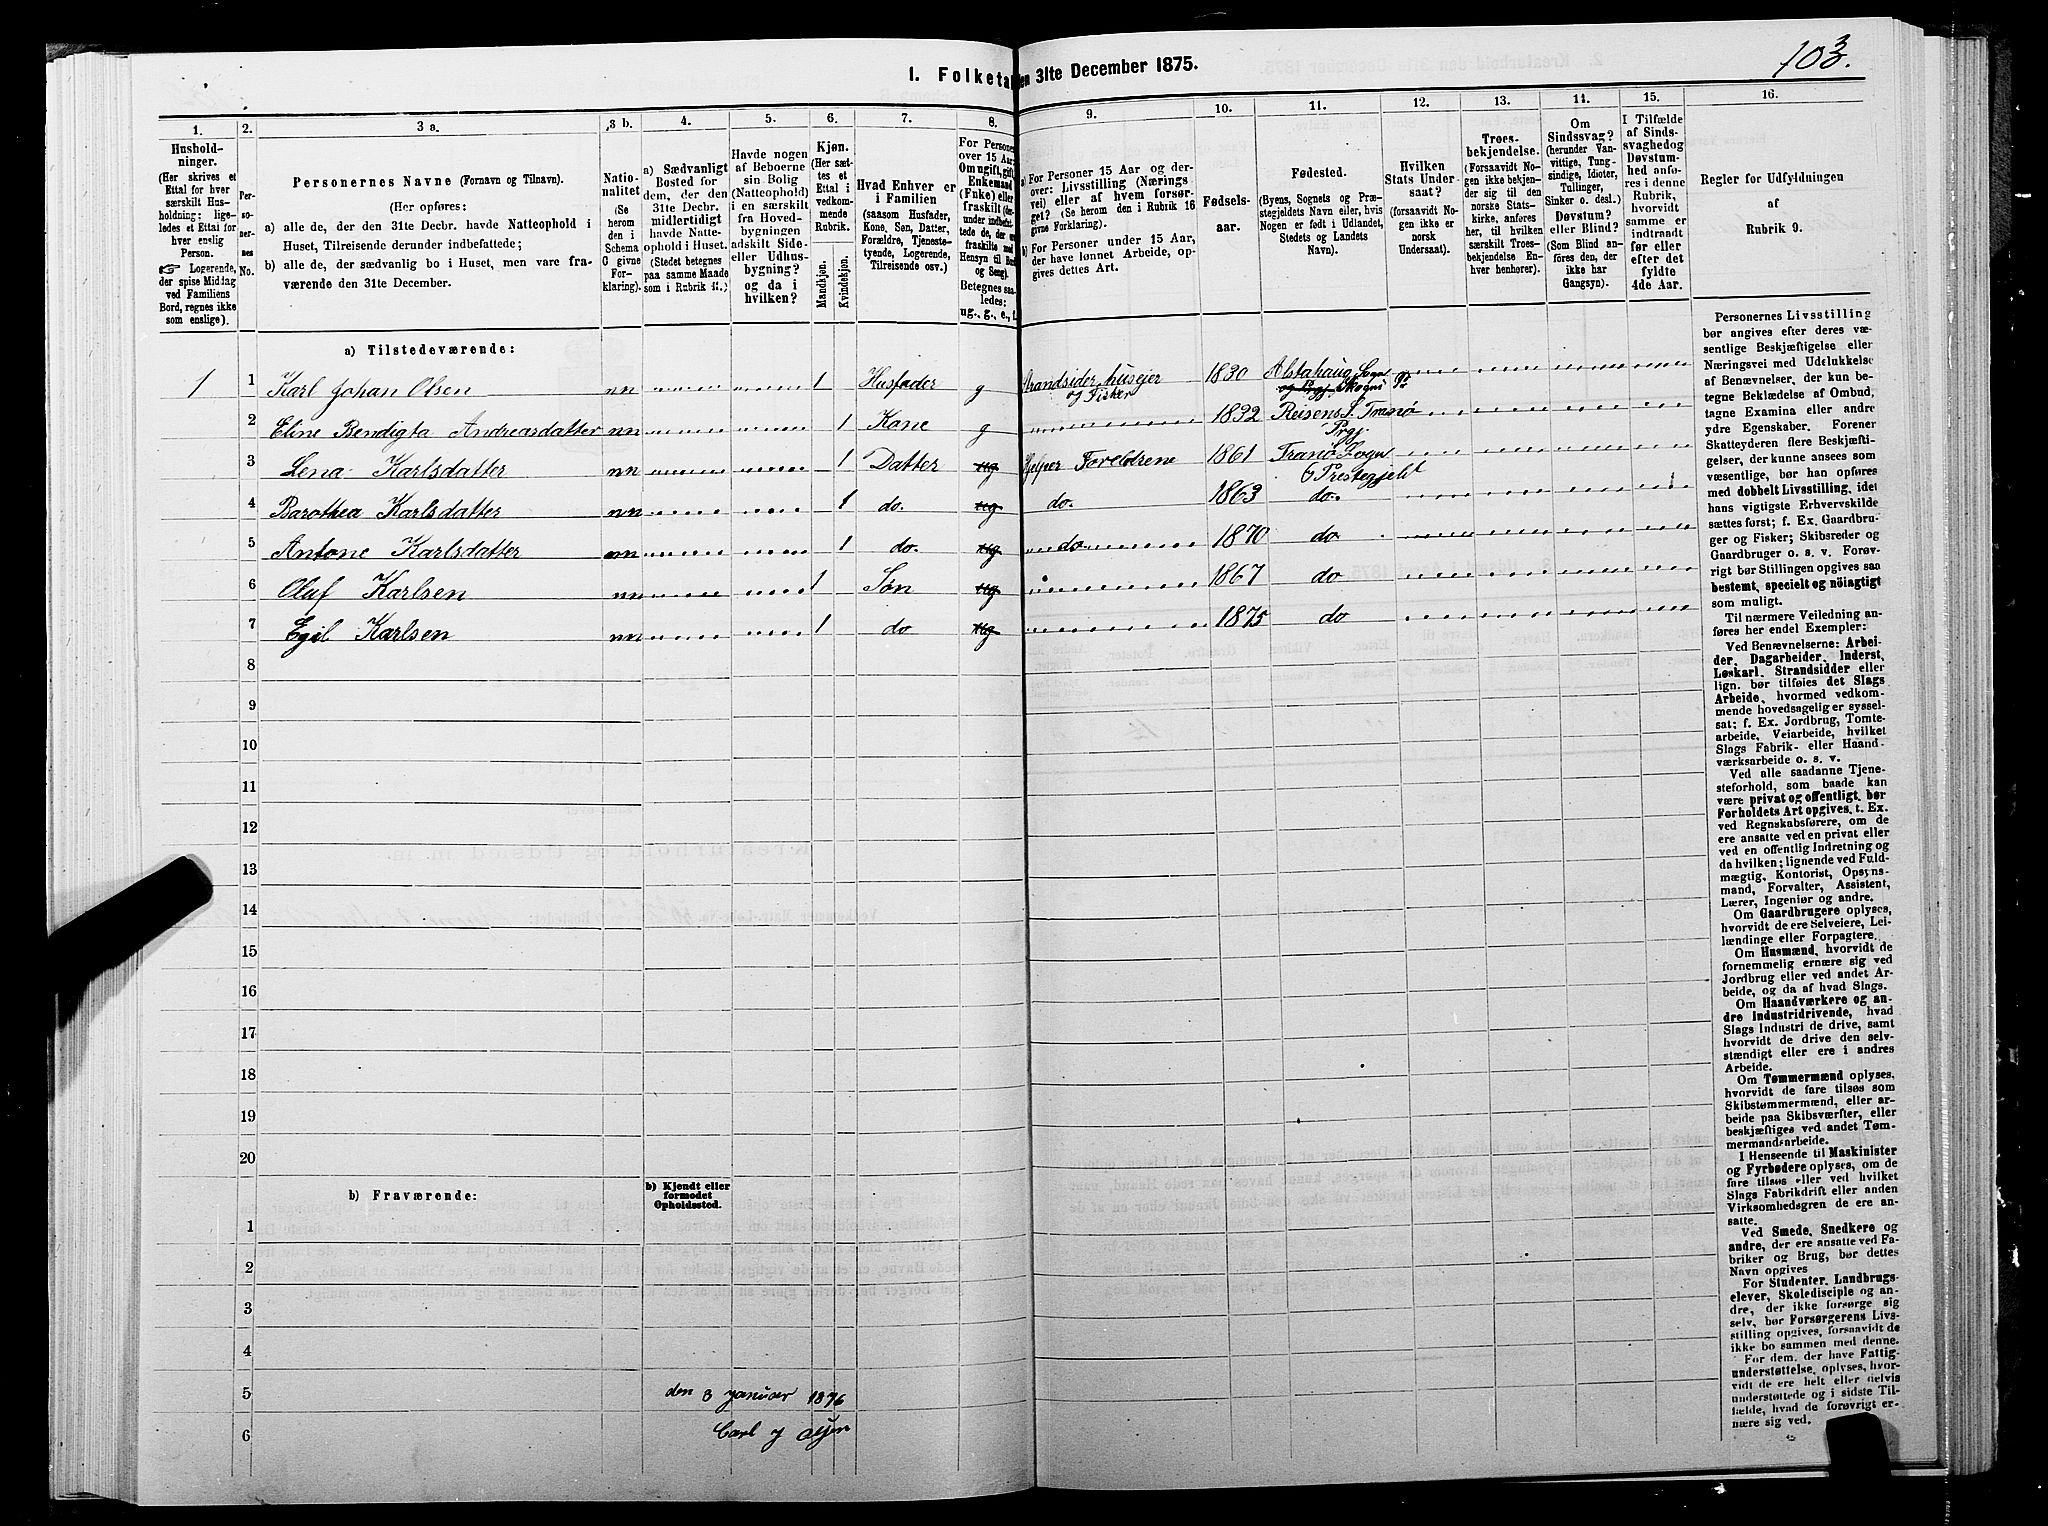 103.
1. Folketal den 31te December 1875.
1. 2. 3 a. 3 b. 4. 5. 6. 7. 8. 9. 10. 11. 12. 13. 14. 15. 16.
Hushold-
ninger.
(Her skrives et
Ettal for hver
særskilt Hus-
holdning; lige-
ledes et Ettal for
hver enslig
Person.
☞ Logerende,
der spise Middag
ved Familiens
Bord, regnes ikke
som enslige).
Per-
so-
ner-
nes
No.
Personernes Navne (Fornavn og Tilnavn).
(Her opføres:
a) alle de, der den 31te Decbr. havde Natteophold i
Huset, Tilreisende derunder indbefattede;
b) alle de, der sædvanlig bo i Huset, men vare fra-
værende den 31te December.
Natio-
nalitet
(Se
herom
den i
Schema
G givne
For-
klaring).
a) Sædvanligt
Bosted for
dem, der den
31te Decbr.
midlertidigt
havde Natte-
ophold i Huset.
(Stedet betegnes
paa samme Maade
som i Rubrik 11.)
Havde nogen
af Beboerne
sin Bolig
(Natteophold)
i en særskilt
fra Hoved-
bygningen
adskilt Side-
eller Udhus-
bygning?
og da i
hvilken?
Kjøn.
(Her sæt-
tes et
Ettal i
vedkom-
mende
Rubrik.
Mandkjøn.
Kvindekjøn.
Hvad Enhver er
i Familien
(saasom Husfader,
Kone, Søn, Datter,
Forældre, Tjeneste-
tyende, Logerende,
Tilreisende osv.)
For Personer
over 15 Aar:
Om ugift, gift,
Enkemand
(Enke) eller
fraskilt (der-
under indbefat-
tede de, der ere
fraskilte med
Hensyn til Bord
og Seng).
Betegnes saa-
ledes:
ug., g., e., f.
a) For Personer 15 Aar og der-
over: Livsstilling (Nærings-
vei) eller af hvem forsør-
get? (Se herom den i Rubrik 16
givne Forklaring).
b) For Personer under 15 Aar,
der have lønnet Arbeide, op-
gives dettes Art.
Fødsels-
aar.
Fødested.
(Byens, Sognets og Præ-
stegjeldets Navn eller, hvis
Nogen er født i Udlandet,
Stedets og Landets
Navn).
Hvilken
Stats Under-
saat?
(forsaavidt No-
gen ikke er
norsk
Undersaat).
Troes-
bekjendelse.
(Forsaavidt No-
gen ikke bekjen-
der sig til den
norske Stats-
kirke, anføres
her, til hvilken
særskilt Troes-
bekjendelse En-
hver henhorer.)
Om
Sindssvag?
(herunder Van-
vittige, Tung-
sindige, Idioter,
Tullinger,
Sinker o. desl.)
Døvstum?
eller Blind?
(Som Blind an-
føres den, der
ikke har
Gangsyn).
I Tilfælde
af Sinds-
svaghed og
Døvstum-
hed anfø-
res i denne
Rubrik,
hvorvidt
samme er
indtraadt
før eller
efter det
fyldte
4de Aar.
Regler for Udfyldningen
af
Rubrik 9.
a) Tilstedeværende:
1 1 Karl Johan Olsen nn 1 Husfader g Strandsider, huseier 1830 Alstahaug Sogn
og Fisker og Prgj. Skogns
2 Eline Bendigta Andreasdatter nn 1 Kone g 1832 Reisens S. Tranø
Prgj.
3 Lena Karlsdatter nn 1 Datter ug hjelper Foreldrene 1861 Tranø Sogn
Prestegjeld
4 Barothea Karlsdatter nn 1 do. ug do. 1863 do.
5 Antone Karlsdatter nn 1 do. ug do 1870 do
6 Oluf Karlsen nn 1 Søn ug 1867 do
7 Egil Karlsen nn 1 do ug 1875 do
8
9
10
11
12
13
14
15
16
17
18
19
20
b) Fraværende:
b) Kjendt eller
formodet
Opholdssted.
1
2
3
4
5
6
den 3 januar 1876
Carl J Olsen
Personernes Livsstilling
bør angives efter deres væ-
sentlige Beskjæftigelse eller
Næringsvei med Udelukkelse
af Benævnelser, der kun be-
tegne Beklædelse af Ombud,
tagne Examina eller andre
ydre Egenskaber. Forener
Skatteyderen flere Beskjæfti-
gelser, der kunne ansees som
væsentlige, bør han opføres
med dobbelt Livsstilling, idet
hans vigtigste Erhvervskilde
sættes først; f. Ex. Gaardbru-
ger og Fisker; Skibsreder og
Gaardbruger o. s. v. Forøv-
rigt bør Stillingen opgives saa
bestemt, specielt og nöiagtigt
som muligt.
Til nærmere Veiledning an-
føres her endel Exempler:
Ved Benævnelserne: Arbei-
der, Dagarbeider, Inderst,
Løskarl, Strandsidder eller
lign. bør tilføies det Slags
Arbeide, hvormed vedkom-
mende hovedsagelig er syssel-
sat; f. Ex. Jordbrug, Tomte-
arbeide, Veiarbeide, hvilket
Slags Fabrik- eller Haand-
værksarbeide o. s. v.
Ved alle saadanne Tjene-
steforhold, som baade kan
være privat og offentligt, bør
Forholdets Art opgives, t. Ex.
ved Regnskabsførere, om de
ere ansatte ved en privat eller
ved en offentlig Indretning og
da hvilken; lignende ved Fuld-
mægtig, Kontorist, Opsyns-
mand, Forvalter, Assistent,
Lærer, Ingeniør og andre.
Om Gaardbrugere oplyses,
hvorvidt de ere Selveiere, Lei-
lændinge eller Forpagtere.
Om Husmænd, hvorvidt de
fornemmelig ernære sig ved
Jordbrug eller ved andet Ar-
beide, og da af hvad Slags.
Om Haandværkere og an-
dre Industridrivende, hvad
Slags Industri de drive, samt
hvorvidt de drive den selv-
stændigt eller ere i andres
Arbeide.
Om Tømmermænd oplyses,
hvorvidt de fare tilsøs som
Skibstømmermænd, eller ar-
beide paa Skibsværfter, eller
beskjæftiges ved andet Tøm-
mermandsarbeide.
I Henseende til Maskinister
og Fyrbødere oplyses, om de
fare tilsøs eller ved hvilket
Slags Fabrikdrift eller anden
Virksomhedsgren de ere an-
satte.
Ved Smede, Snedkere og
andre, der ere ansatte ved Fa-
briker og Brug, bør dettes
Navn opgives
For Studenter, Landbrugs-
elever, Skoledisciple og an-
dre, der ikke forsørge sig
selv, bør Forsørgerens Livs-
stilling opgives, forsaavidt de
ikke bo sammen med denne.
For dem, der have Fattig-
understøttelse, oplyses, hvor-
vidt de ere helt eller delvis
understøttede og i sidste Til-
fælde, hvad de forøvrigt er-
nære sig ved.